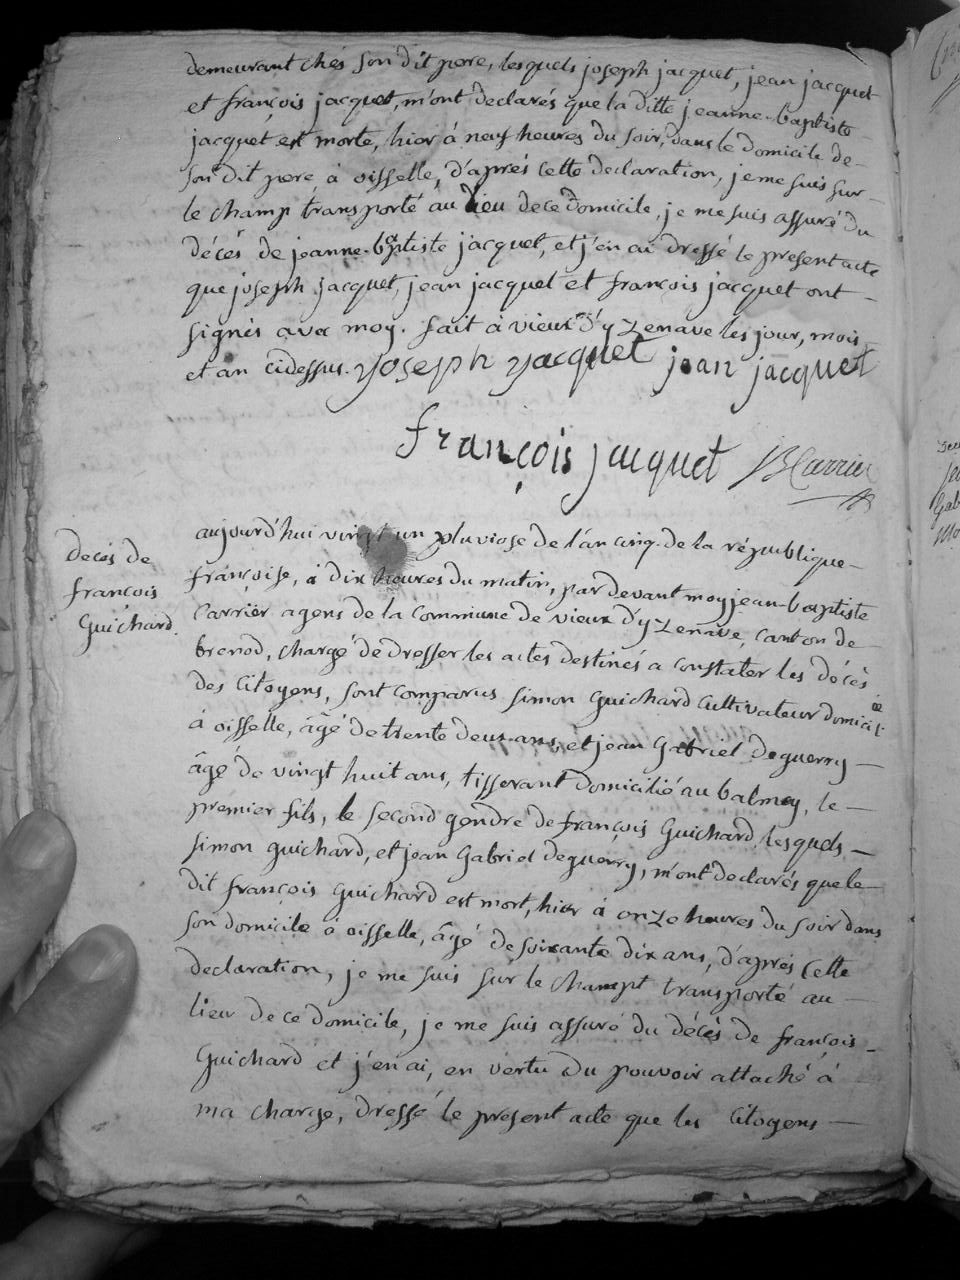 demeurant chés son dit pere, lesquels joseph jacquet, jean jacquet
et françois jacquet, m'ont declarés que la ditte jeanne-baptiste
jacquet est morte, hier à neuf heures du soir, dans le domicile de
son dit pere à oisselle, d'aprés cette declaration, je me suis sur
le champ transporté au lieu de ce domicile, je me suis assuré du
décés de jeanne-baptiste jacquet, et j'en ai dressé le present acte
que joseph jacquet, jean jacquet et françois jacquet ont
signés avec moy. fait à vieux d'yzenave les jour, mois
et an cidessus. joseph jacquet jean jacquet
françois jacquet JB Carrier
decés de
françois
Guichard.
aujourd'hui vingt un pluviose de l'an cinq de la république
françoise, à dix heures du matin, pardevant moy jean-baptiste
Carrier agens de la commune de vieux d'yzenave, canton de
brenod, chargé de dresser les actes destinés a constater les décés
des citoyens, sont comparus simon guichard cultivateur domicilié
à oisselle, âgé de trente deux ans, et jean Gabriel deguerry
âgé de vingt huit ans, tisserant domicilié au balmey, le
premier fils, le second gendre de françois Guichard, lesquels
simon guichard, et jean Gabriel deguerry, m'ont declarés que le
dit françois guichard est mort, hier à onze heures du soir dans
son domicile à oisselle, âgé de soixante dix ans, d'aprés cette
declaration, je me suis sur le champt transporté au
lieu de ce domicile, je me suis assuré du décés de françois
Guichard et j'en ai, en vertu du pouvoir attaché à
ma charge, dressé le present acte que les citoyens